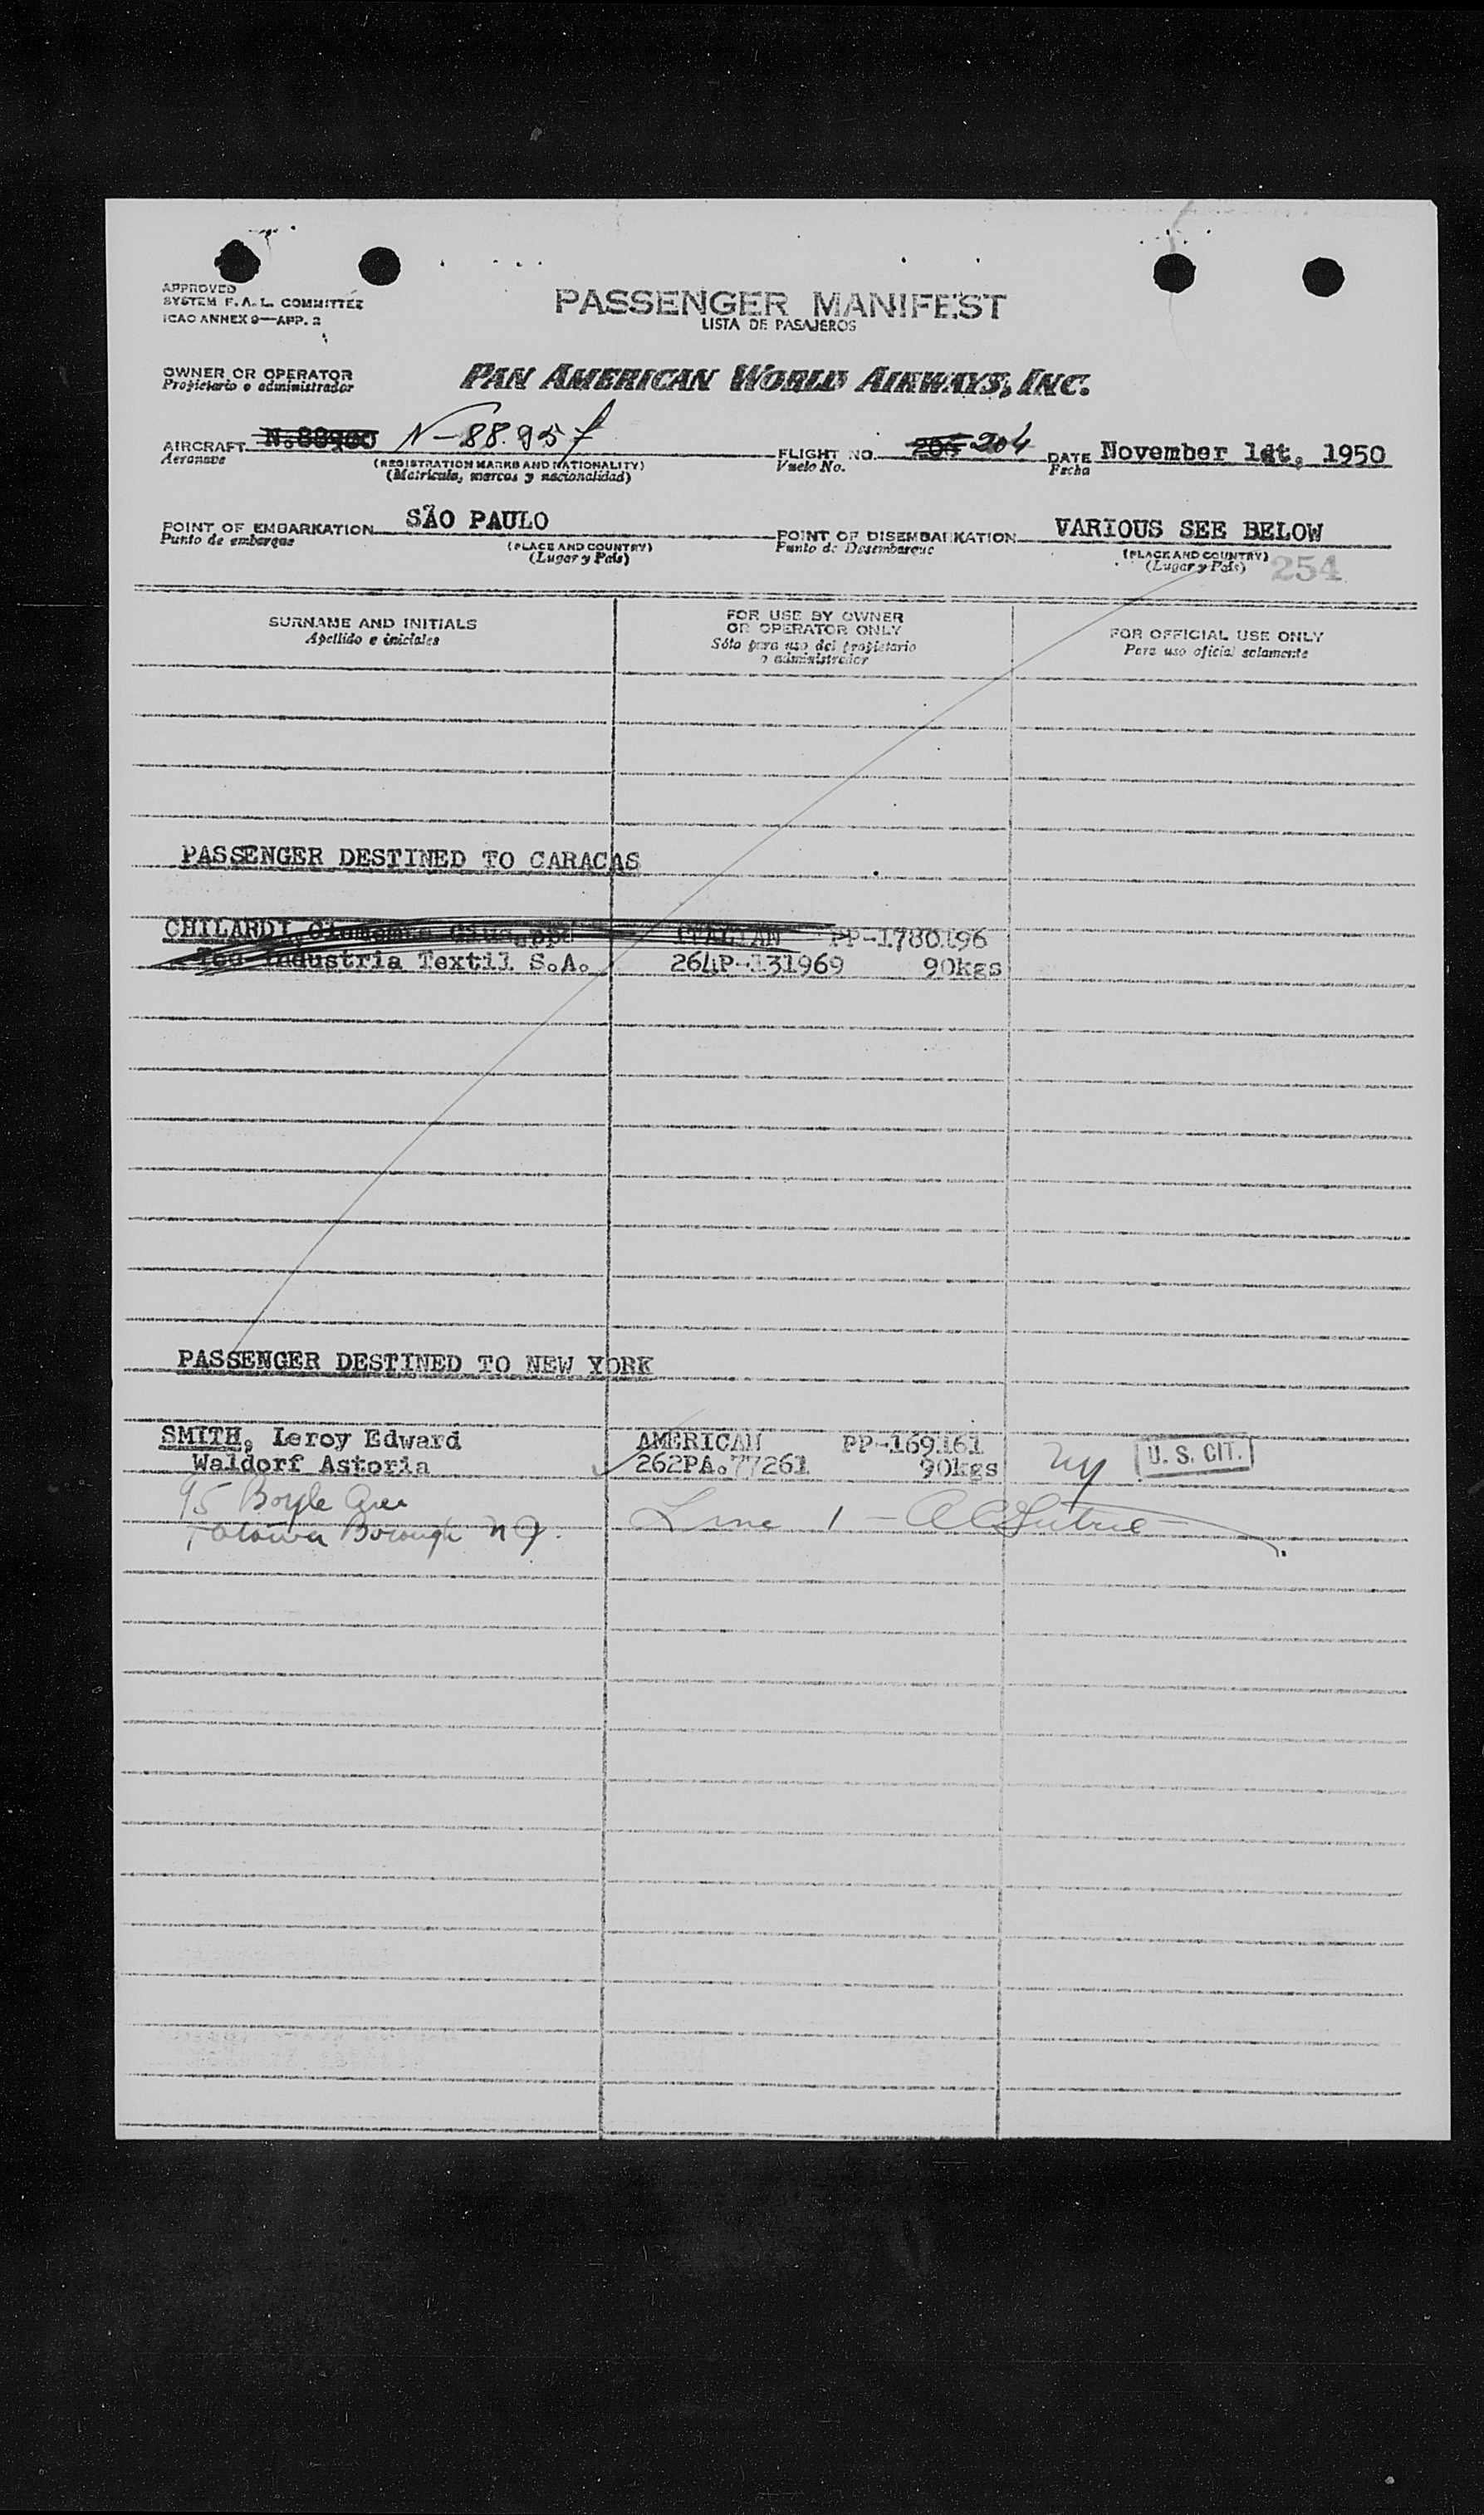 APPROVED
SYSTEM F. A. L. COMMITTEE
ICAO ANNEX 9—APP. 2
PASSENGER MANIFEST
LISTA DE PASAJEROS
OWNER OR OPERATOR
Propietario o administrador
PAN AMERICAN WORLD AIRWAYS, INC.
AIRCRAFT N-88.957
Aeronave
(REGISTRATION MARKS AND NATIONALITY)
(Matricula, marcas y nacionalidad)
FLIGHT NO. 204
Vuelo No.
DATE November 1st, 1950
Fecha
POINT OF EMBARKATION SÃO PAULO
Punto de embarque
(PLACE AND COUNTRY)
(Lugar y País)
POINT OF DISEMBARKATION VARIOUS SEE BELOW
Punto de Desembarque
(PLACE AND COUNTRY)
(Lugar y País)
254
SURNAME AND INITIALS
Apellido e iniciales
FOR USE BY OWNER
OR OPERATOR ONLY
Sólo para uso del propietario
o administrador
FOR OFFICIAL USE ONLY
Para uso oficial solamente
PASSENGER DESTINED TO CARACAS
CHILARDI, ITALIAN PP-1780196
Industria Textil S.A. 264P-131969 90kgs
PASSENGER DESTINED TO NEW YORK
SMITH, Leroy Edward AMERICAN PP-169161
Waldorf Astoria 262PA.77261 90kgs ny U. S. CIT.
95 Boyle Ave
Totowa Borough NJ. Line 1 -